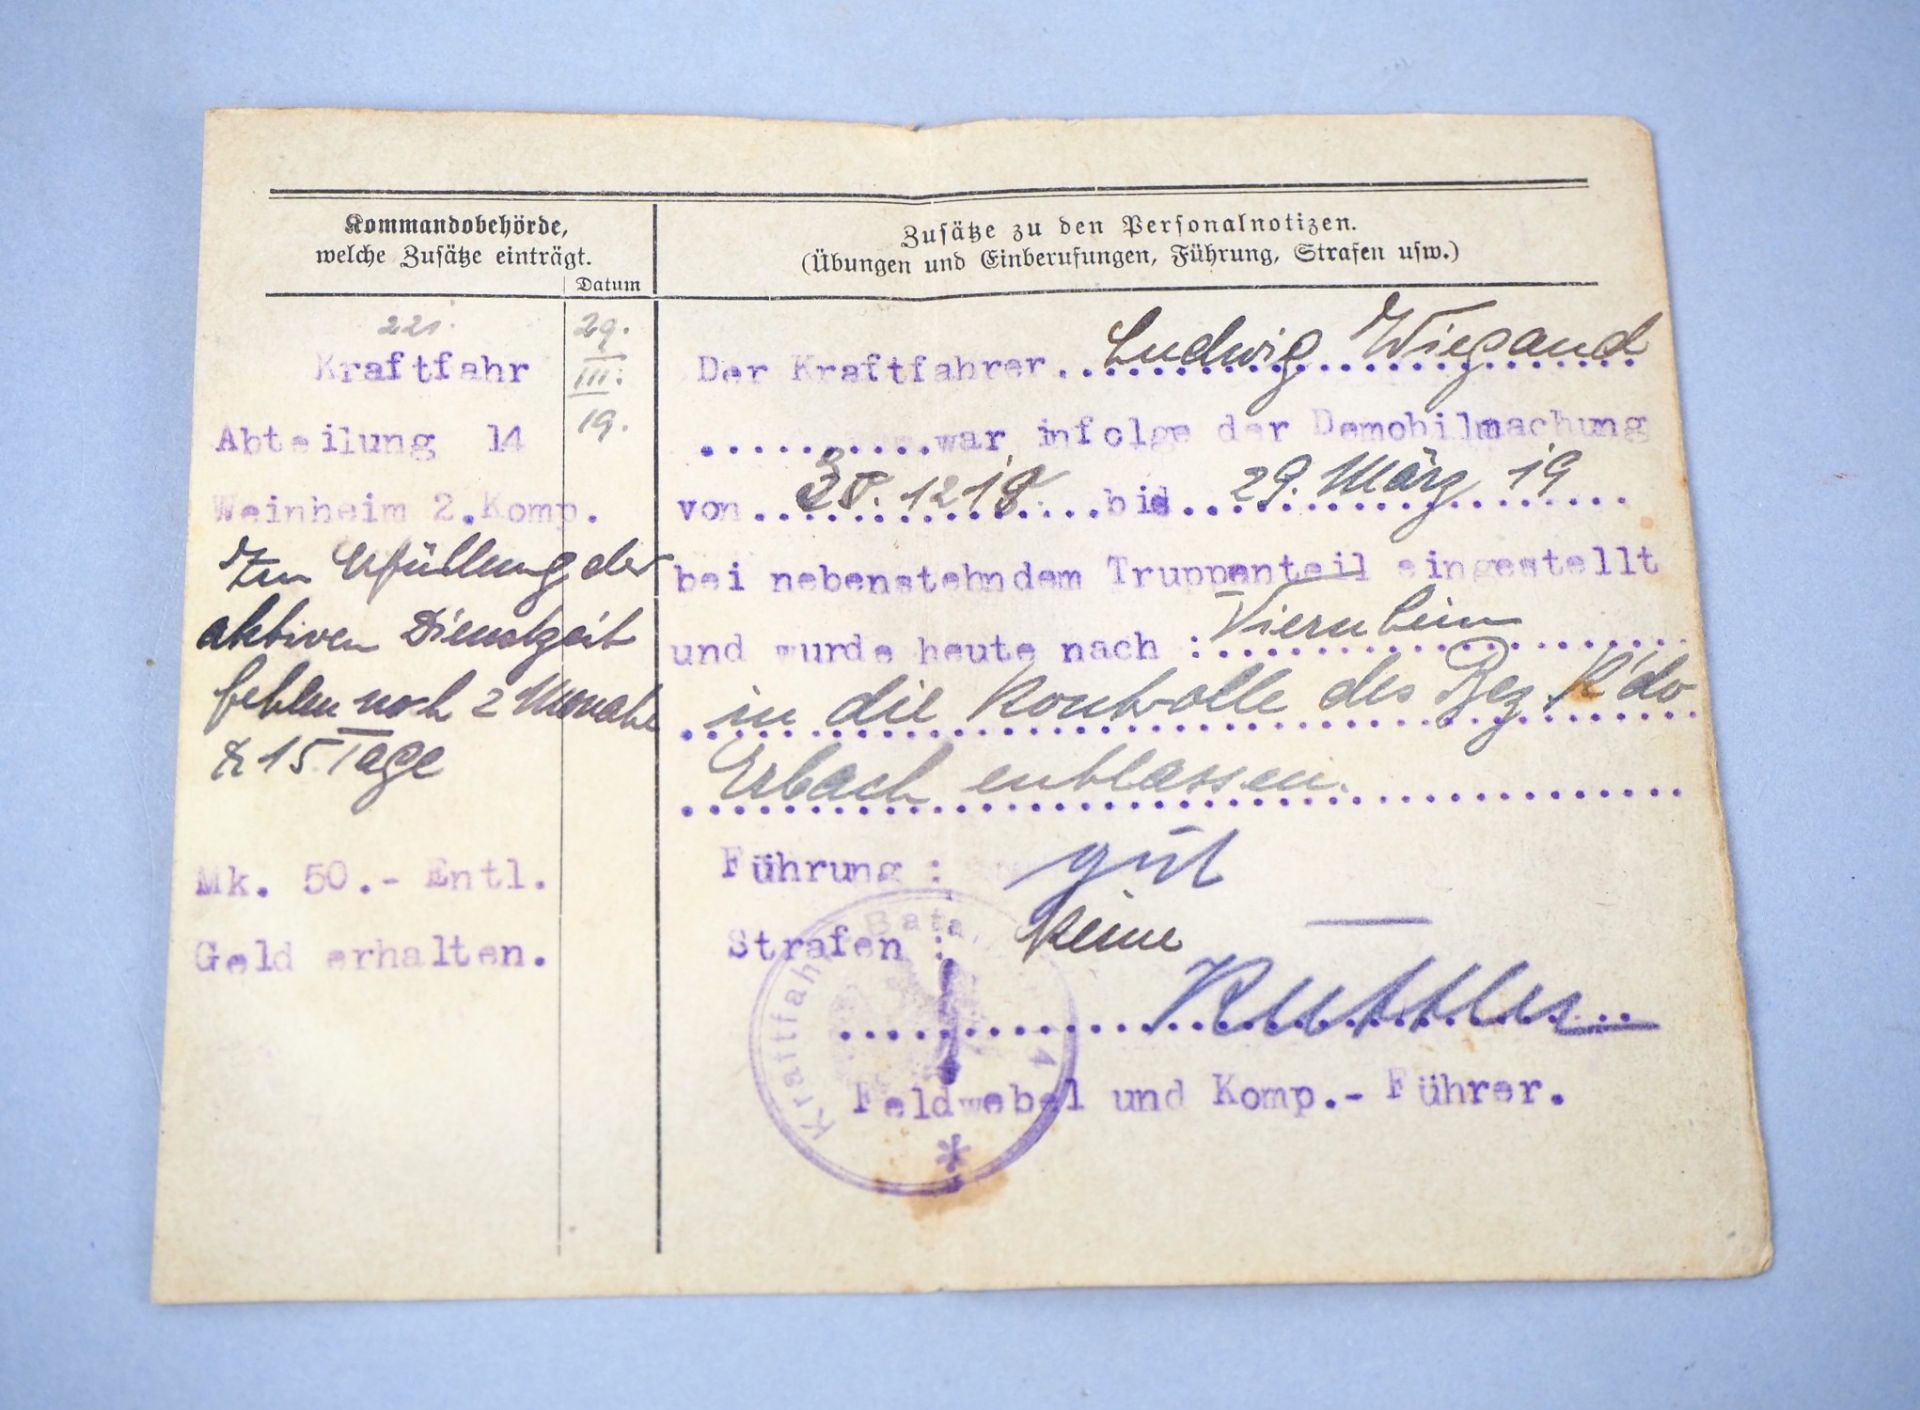 Kommandobehörde,
welche Zusätze einträgt.
Datum
Zusätze zu den Personalnotizen.
(Übungen und Einberufungen, Führung, Strafen usw.)
221.
Kraftfahr
Abteilung 14
Weinheim 2.Komp.
Zur Erfüllung der
aktiven Dienstzeit
fehlen noch 2 Monate
& 15 Tage
Mk. 50.- Entl.
Geld erhalten.
29.
III.
19.
Der Kraftfahrer Ludwig Wiegand
war infolge der Demobilmachung
von 12 18 bis 29. März 19
bei nebenstehndem Truppenteil eingestellt
und wurde heute nach : Viernheim
in die Kontrolle des Bez. K'do
Erbach entlassen.
Führung : gut
Strafen : keine
Feldwebel und Komp.- Führer.
Kraftfahr Batl.